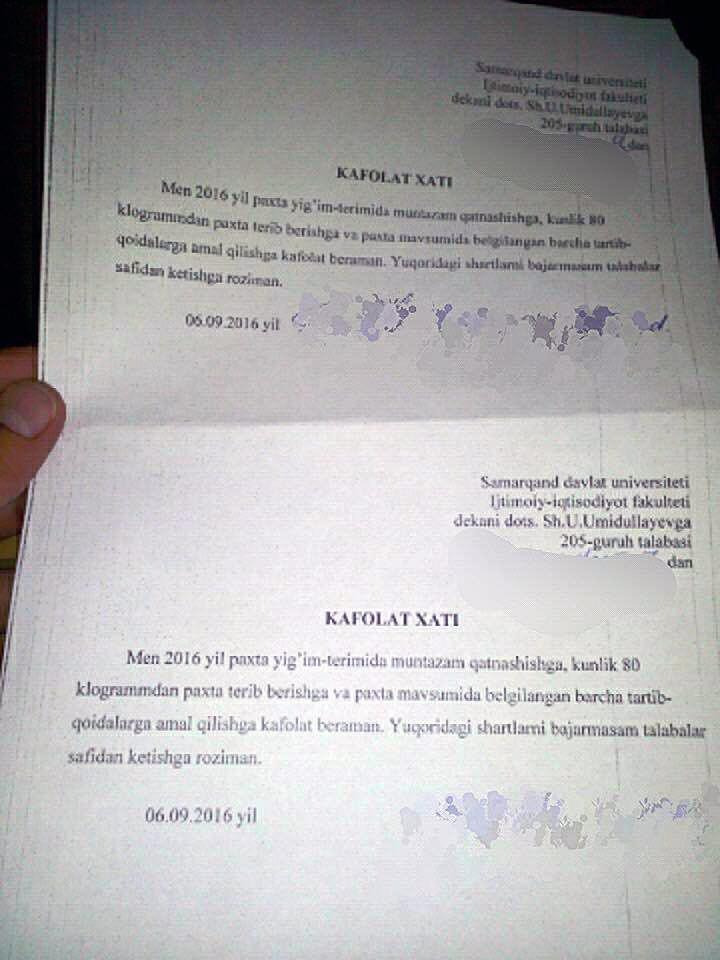 Samarqand davlat universiteti
Ijtimoiy-iqtisodiyot fakulteti
dekani dots. Sh.U.Umidullayevga
205-guruh talabasi
dan
KAFOLAT XATI
Men 2016 yil paxta yig'im-terimida muntazam qatnashishga, kunlik 80
klogrammdan paxta terib berishga va paxta mavsumida belgilangan barcha tartib-
qoidalarga amal qilishga kafolat beraman. Yuqoridagi shartlarni bajarmasam talabalar
safidan ketishga roziman.
06.09.2016 yil
Samarqand davlat universiteti
Ijtimoiy-iqtisodiyot fakulteti
dekani dots. Sh.U.Umidullayevga
205-guruh talabasi
dan
KAFOLAT XATI
Men 2016 yil paxta yig'im-terimida muntazam qatnashishga, kunlik 80
klogrammdan paxta terib berishga va paxta mavsumida belgilangan barcha tartib-
qoidalarga amal qilishga kafolat beraman. Yuqoridagi shartlarni bajarmasam talabalar
safidan ketishga roziman.
06.09.2016 yil